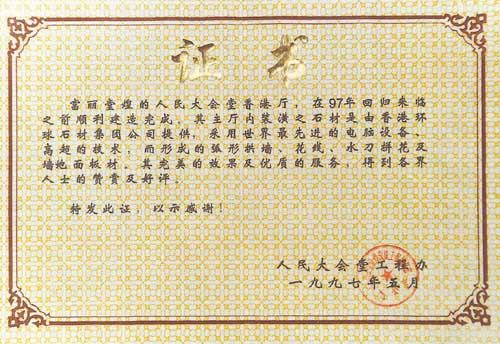 证书
富丽堂煌的人民大会堂香港厅，在97年回归来临
之前顺利建造完成，其主厅内装潢之石材是由香港环
球石材集团公司提供，采用世界最先进的电脑设备、
高超的技术，而形成的弧形拱墙、花线、水刀拼花及
墙地面板材。其完美的效果及优质的服务，得到各界
人士的赞赏及好评。
特发此证，以示感谢！
人民大会堂工程办
一九九七年五月